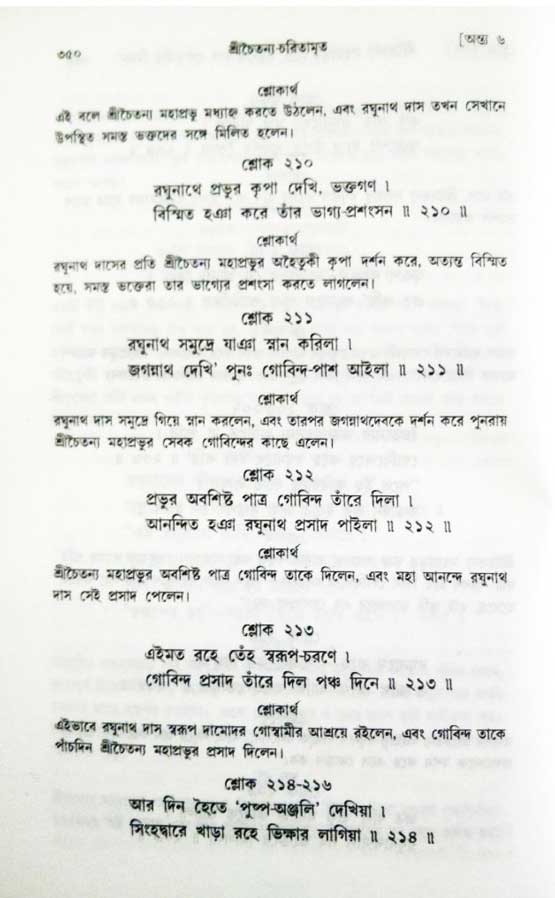 ৩৫০
শ্রীচৈতন্য-চরিতামৃত
[অন্ত্য ৬
শ্লোকার্থ
এই বলে শ্রীচৈতন্য মহাপ্রভু মধ্যাহ্ন করতে উঠলেন, এবং রঘুনাথ দাস তখন সেখানে
উপস্থিত সমস্ত ভক্তদের সঙ্গে মিলিত হলেন।
শ্লোক ২১০
রঘুনাথে প্রভুর কৃপা দেখি, ভক্তগণ ।
বিস্মিত হঞা করে তাঁর ভাগ্য-প্রশংসন ॥ ২১০ ॥
শ্লোকার্থ
রঘুনাথ দাসের প্রতি শ্রীচৈতন্য মহাপ্রভুর অহৈতুকী কৃপা দর্শন করে, অত্যন্ত বিস্মিত
হয়ে, সমস্ত ভক্তেরা তার ভাগ্যের প্রশংসা করতে লাগলেন।
শ্লোক ২১১
রঘুনাথ সমুদ্রে যাঞা স্নান করিলা ।
জগন্নাথ দেখি' পুনঃ গোবিন্দ-পাশ আইলা ॥ ২১১ ॥
শ্লোকার্থ
রঘুনাথ দাস সমুদ্রে গিয়ে স্নান করলেন, এবং তারপর জগন্নাথদেবকে দর্শন করে পুনরায়
শ্রীচৈতন্য মহাপ্রভুর সেবক গোবিন্দের কাছে এলেন।
শ্লোক ২১২
প্রভুর অবশিষ্ট পাত্র গোবিন্দ তাঁরে দিলা ।
আনন্দিত হঞা রঘুনাথ প্রসাদ পাইলা ॥ ২১২ ॥
শ্লোকার্থ
শ্রীচৈতন্য মহাপ্রভুর অবশিষ্ট পাত্র গোবিন্দ তাকে দিলেন, এবং মহা আনন্দে রঘুনাথ
দাস সেই প্রসাদ পেলেন।
শ্লোক ২১৩
এইমত রহে তেঁহ স্বরূপ-চরণে ।
গোবিন্দ প্রসাদ তাঁরে দিল পঞ্চ দিনে ॥ ২১৩ ॥
শ্লোকার্থ
এইভাবে রঘুনাথ দাস স্বরূপ দামোদর গোস্বামীর আশ্রয়ে রইলেন, এবং গোবিন্দ তাকে
পাঁচদিন শ্রীচৈতন্য মহাপ্রভুর প্রসাদ দিলেন।
শ্লোক ২১৪-২১৬
আর দিন হৈতে 'পুষ্প-অঞ্জলি' দেখিয়া ।
সিংহদ্বারে খাড়া রহে ভিক্ষার লাগিয়া ॥ ২১৪ ॥